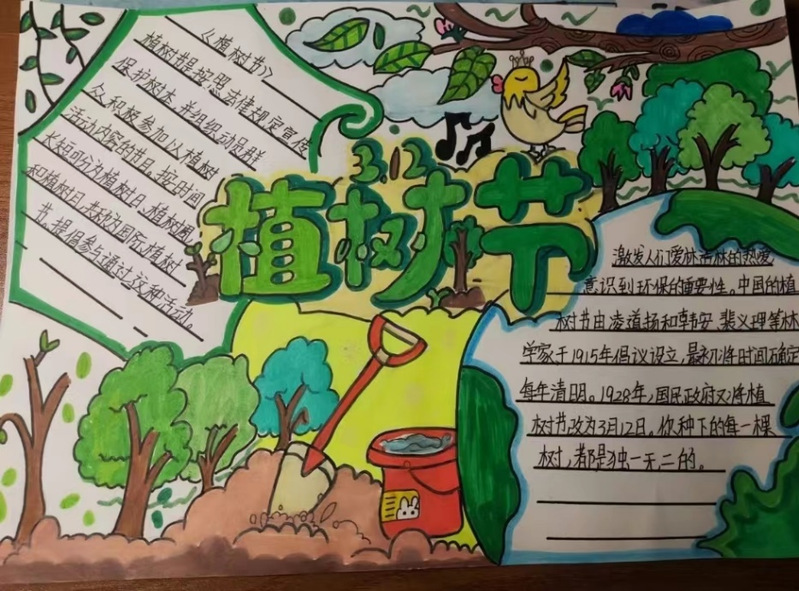 《植树节》
植树节是按照法律规定宣传
保护树木,并组织动员群
众积极参加以植树
活动内容的节日。按时间
长短可分为植树日、植树周
和植树月,共称为国际植树
节。提倡参与通过这种活动。
3.12
植树节
激发人们爱林造林的热爱
意识到环保的重要性。中国的植
树节由凌道扬和韩安、裴义理等林
学家于1915年倡议设立,最初将时间确定
每年清明。1928年,国民政府又将植
树节改为3月12日。你种下的每一棵
树,都是独一无二的。